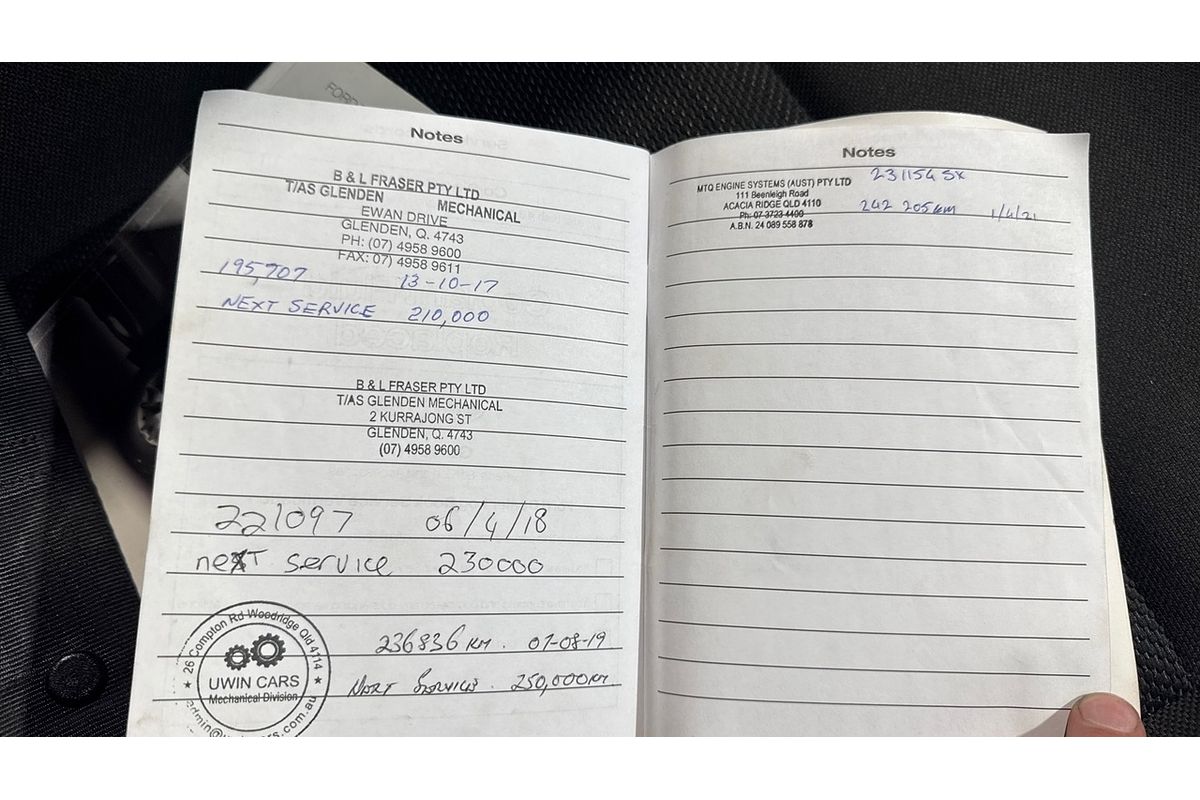 FORD
Notes
B & L FRASER PTY LTD
T/AS GLENDEN MECHANICAL
EWAN DRIVE
GLENDEN, Q. 4743
PH: (07) 4958 9600
FAX: 07) 4958 9611
195,707 13-10-17
NEXT SERVICE 210,000
B & L FRASER PTY LTD
T/AS GLENDEN MECHANICAL
2 KURRAJONG ST
GLENDEN, Q. 4743
(07) 4958 9600
221097 06/4/18
neXT service 230000
26 Compton Rd Woodridge Qld 4114
UWIN CARS
Mechanical Division
236836 KM. 07-08-19
NEXT SERVICE. 250,000KM
Notes
MTQ ENGINE SYSTEMS (AUST) PTY LTD
111 Beenleigh Road
ACACIA RIDGE QLD 4110
Ph: 07 3723 4400
A.B.N. 24 089 558 878
231154 SX
242 205km 1/4/21